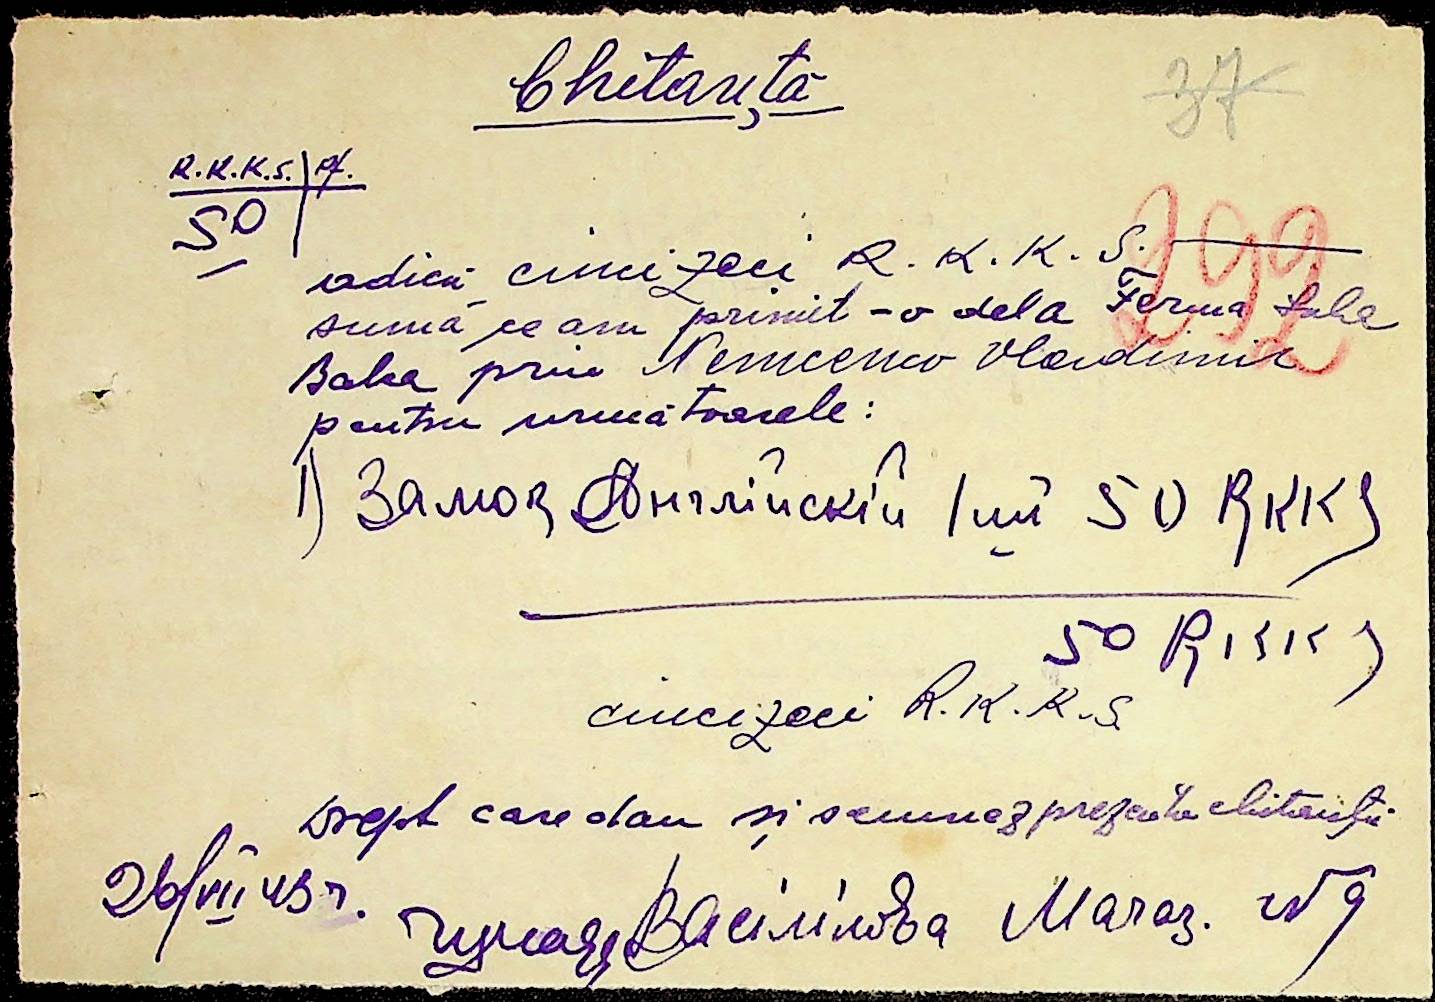 Chitanță
37
R.K.K.S. | pf.
50
292
adică cincizeci R.K.K.S.
sumă ce am primit-o dela Ferma
Baka prin Nemcenco Vladimir
pentru următoarele:
1) Замок Англійскій 1 шт 50 RKKS
50 RKKS
cincizeci R.K.K.S.
drept care dau și semnez prezenta chitanță
26/VII 43 г.
Василікова Магаз. № 9